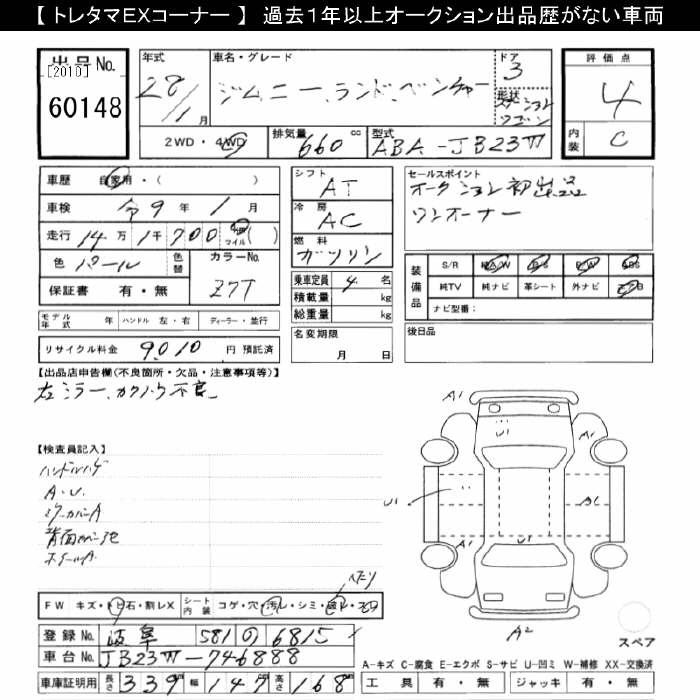 【 トレタマEXコーナー 】 過去1年以上オークション出品歴がない車両
出品No.
[2010]
60148
年式 28/1月
車名・グレード ジムニー ランドベンチャー
ドア 3
形状 ステーションワゴン
2WD・4WD
排気量 660 cc
型式 ABA-JB23W
評価点 4
内装 C
車歴 自家用・( )
車検 令9年1月
走行 14万1千700 km マイル( )
色 パール
色替
カラーNo. Z7T
保証書 有・無
モデル年式 年 ハンドル 左・右 ディーラー・並行
リサイクル料金 9010 円 預託済
シフト AT
冷房 AC
燃料 ガソリン
乗車定員 4 名
積載量 kg
総重量 kg
名変期限 月 日
セールスポイント
オークション初出品
ワンオーナー
装備品
S/R AAW P/S P/W ABS
純TV 純ナビ 革シート 外ナビ エアB
ナビ型番:
後日品
【出品店申告欄(不良箇所・欠品・注意事項等)】
左ミラーカクノウ不良
【検査員記入】
ハンドルハゲ
A・U
ミラーカバーA
背面カバー
ホイールA
A1
U1
A1
U1
A1
A1
A1
U1
A2
スペア
FW キズ・トビ石・割レX
シート内装 コゲ・穴・汚レ・シミ・破レ・
へたり
登録No. 岐阜 581 の 6815
車台No. JB23W-746888
車庫証明用 長さ 339 幅 147 高さ 168
A-キズ C-腐食 E-エクボ S-サビ U-凹ミ W-補修 XX-交換済
工具 有・無 ジャッキ 有・無